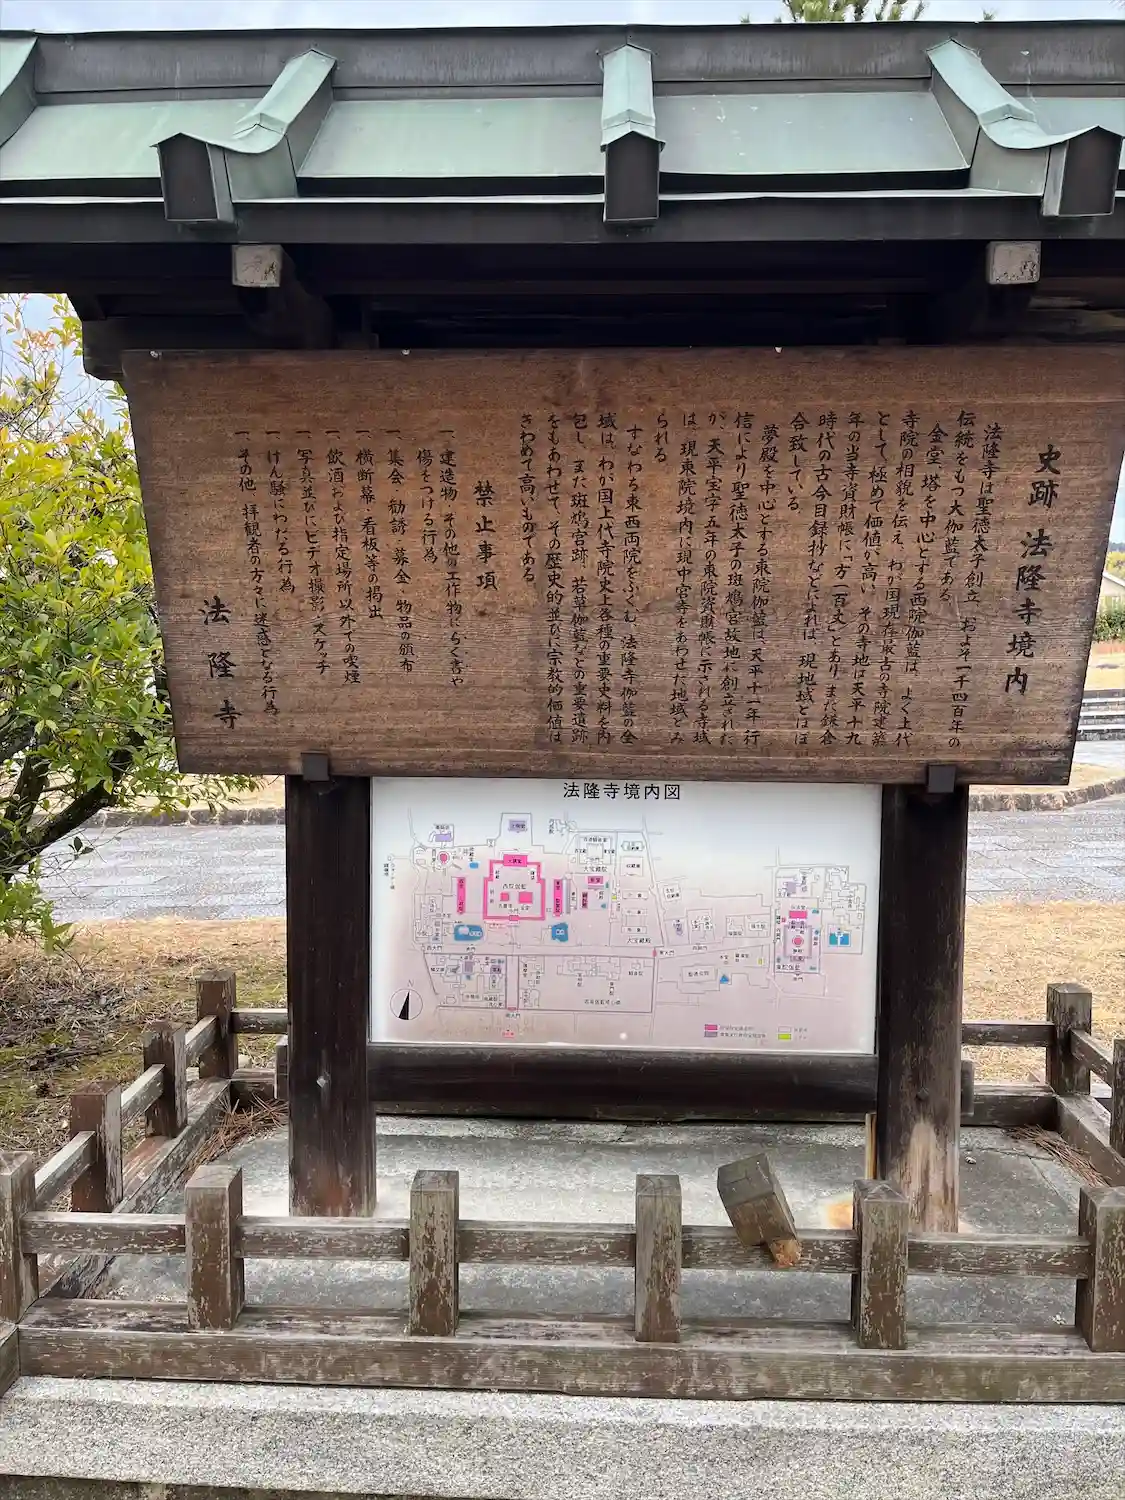 史跡 法隆寺境内
法隆寺は聖徳太子創立、およそ一千四百年の
伝統をもつ大伽藍である。
金堂、塔を中心とする西院伽藍は、よく上代
寺院の相貌を伝え、わが国現存最古の寺院建築
として、極めて価値が高い。その寺地は天平十九
年の当寺資財帳に、方一百丈とあり、また鎌倉
時代の古今目録抄などによれば、現地域とほぼ
合致している。
夢殿を中心とする東院伽藍は、天平十一年、行
信により聖徳太子の斑鳩宮故地に創立された
が、天平宝字五年の東院資財帳に示される寺域
は、現東院境内に現中宮寺をあわせた地域とみ
られる。
すなわち東西両院をふくむ、法隆寺伽藍の全
域は、わが国上代寺院史上各種の重要史料を内
包し、また斑鳩宮跡、若草伽藍などの重要遺跡
をもあわせて、その歴史的並びに宗教的価値は
きわめて高いものである。
禁止事項
一、建造物・その他の工作物にらく書や
傷をつける行為
一、集会・勧誘・募金・物品の頒布
一、横断幕・看板等の掲出
一、飲酒および指定場所以外での喫煙
一、写真並びにビデオ撮影・スケッチ
一、けん騒にわたる行為
一、その他、拝観者の方々に迷惑となる行為
法隆寺
法隆寺境内図
西院伽藍
大宝蔵院
大宝蔵殿
東大門
西大門
南大門
東院伽藍
N